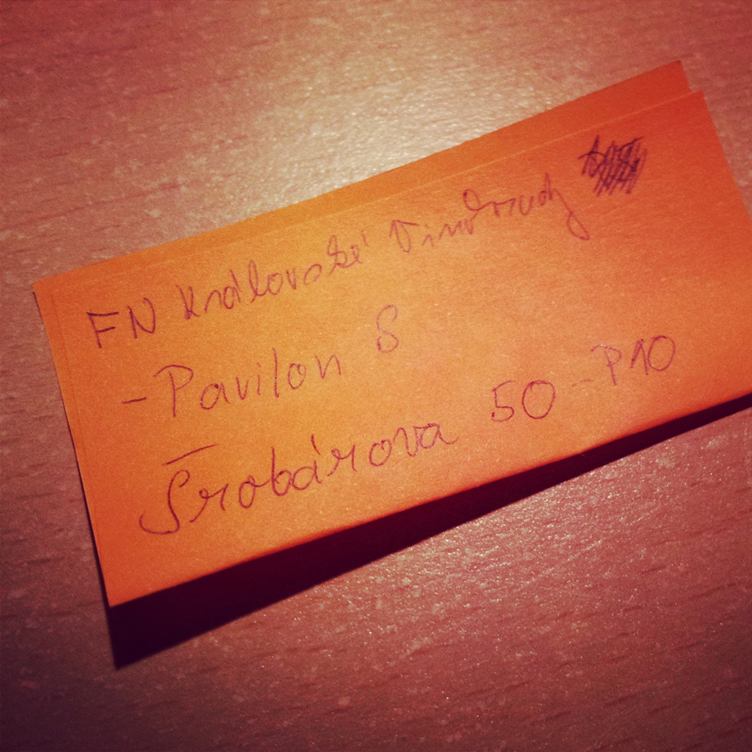 FN Královské Vinohrady
- Pavilon S
Šrobárova 50 - P10